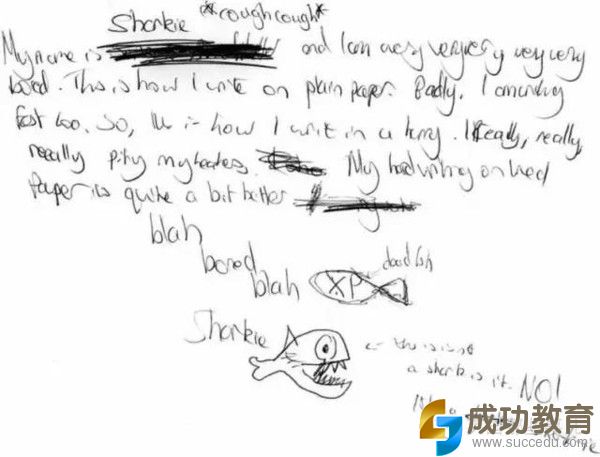 Sharkie *cough cough*
My name is and I am very very very very very
bored. This is how I write on plain paper. Badly. I am writing
fast too. So, this is how I write in a hurry. I Really, really,
really pity my teachers. My handwriting on lined
Paper is quite a bit better
blah
bored
blah XP dead fish
Sharkie this is not
a shark is it. NO!
成功教育
www.succedu.com